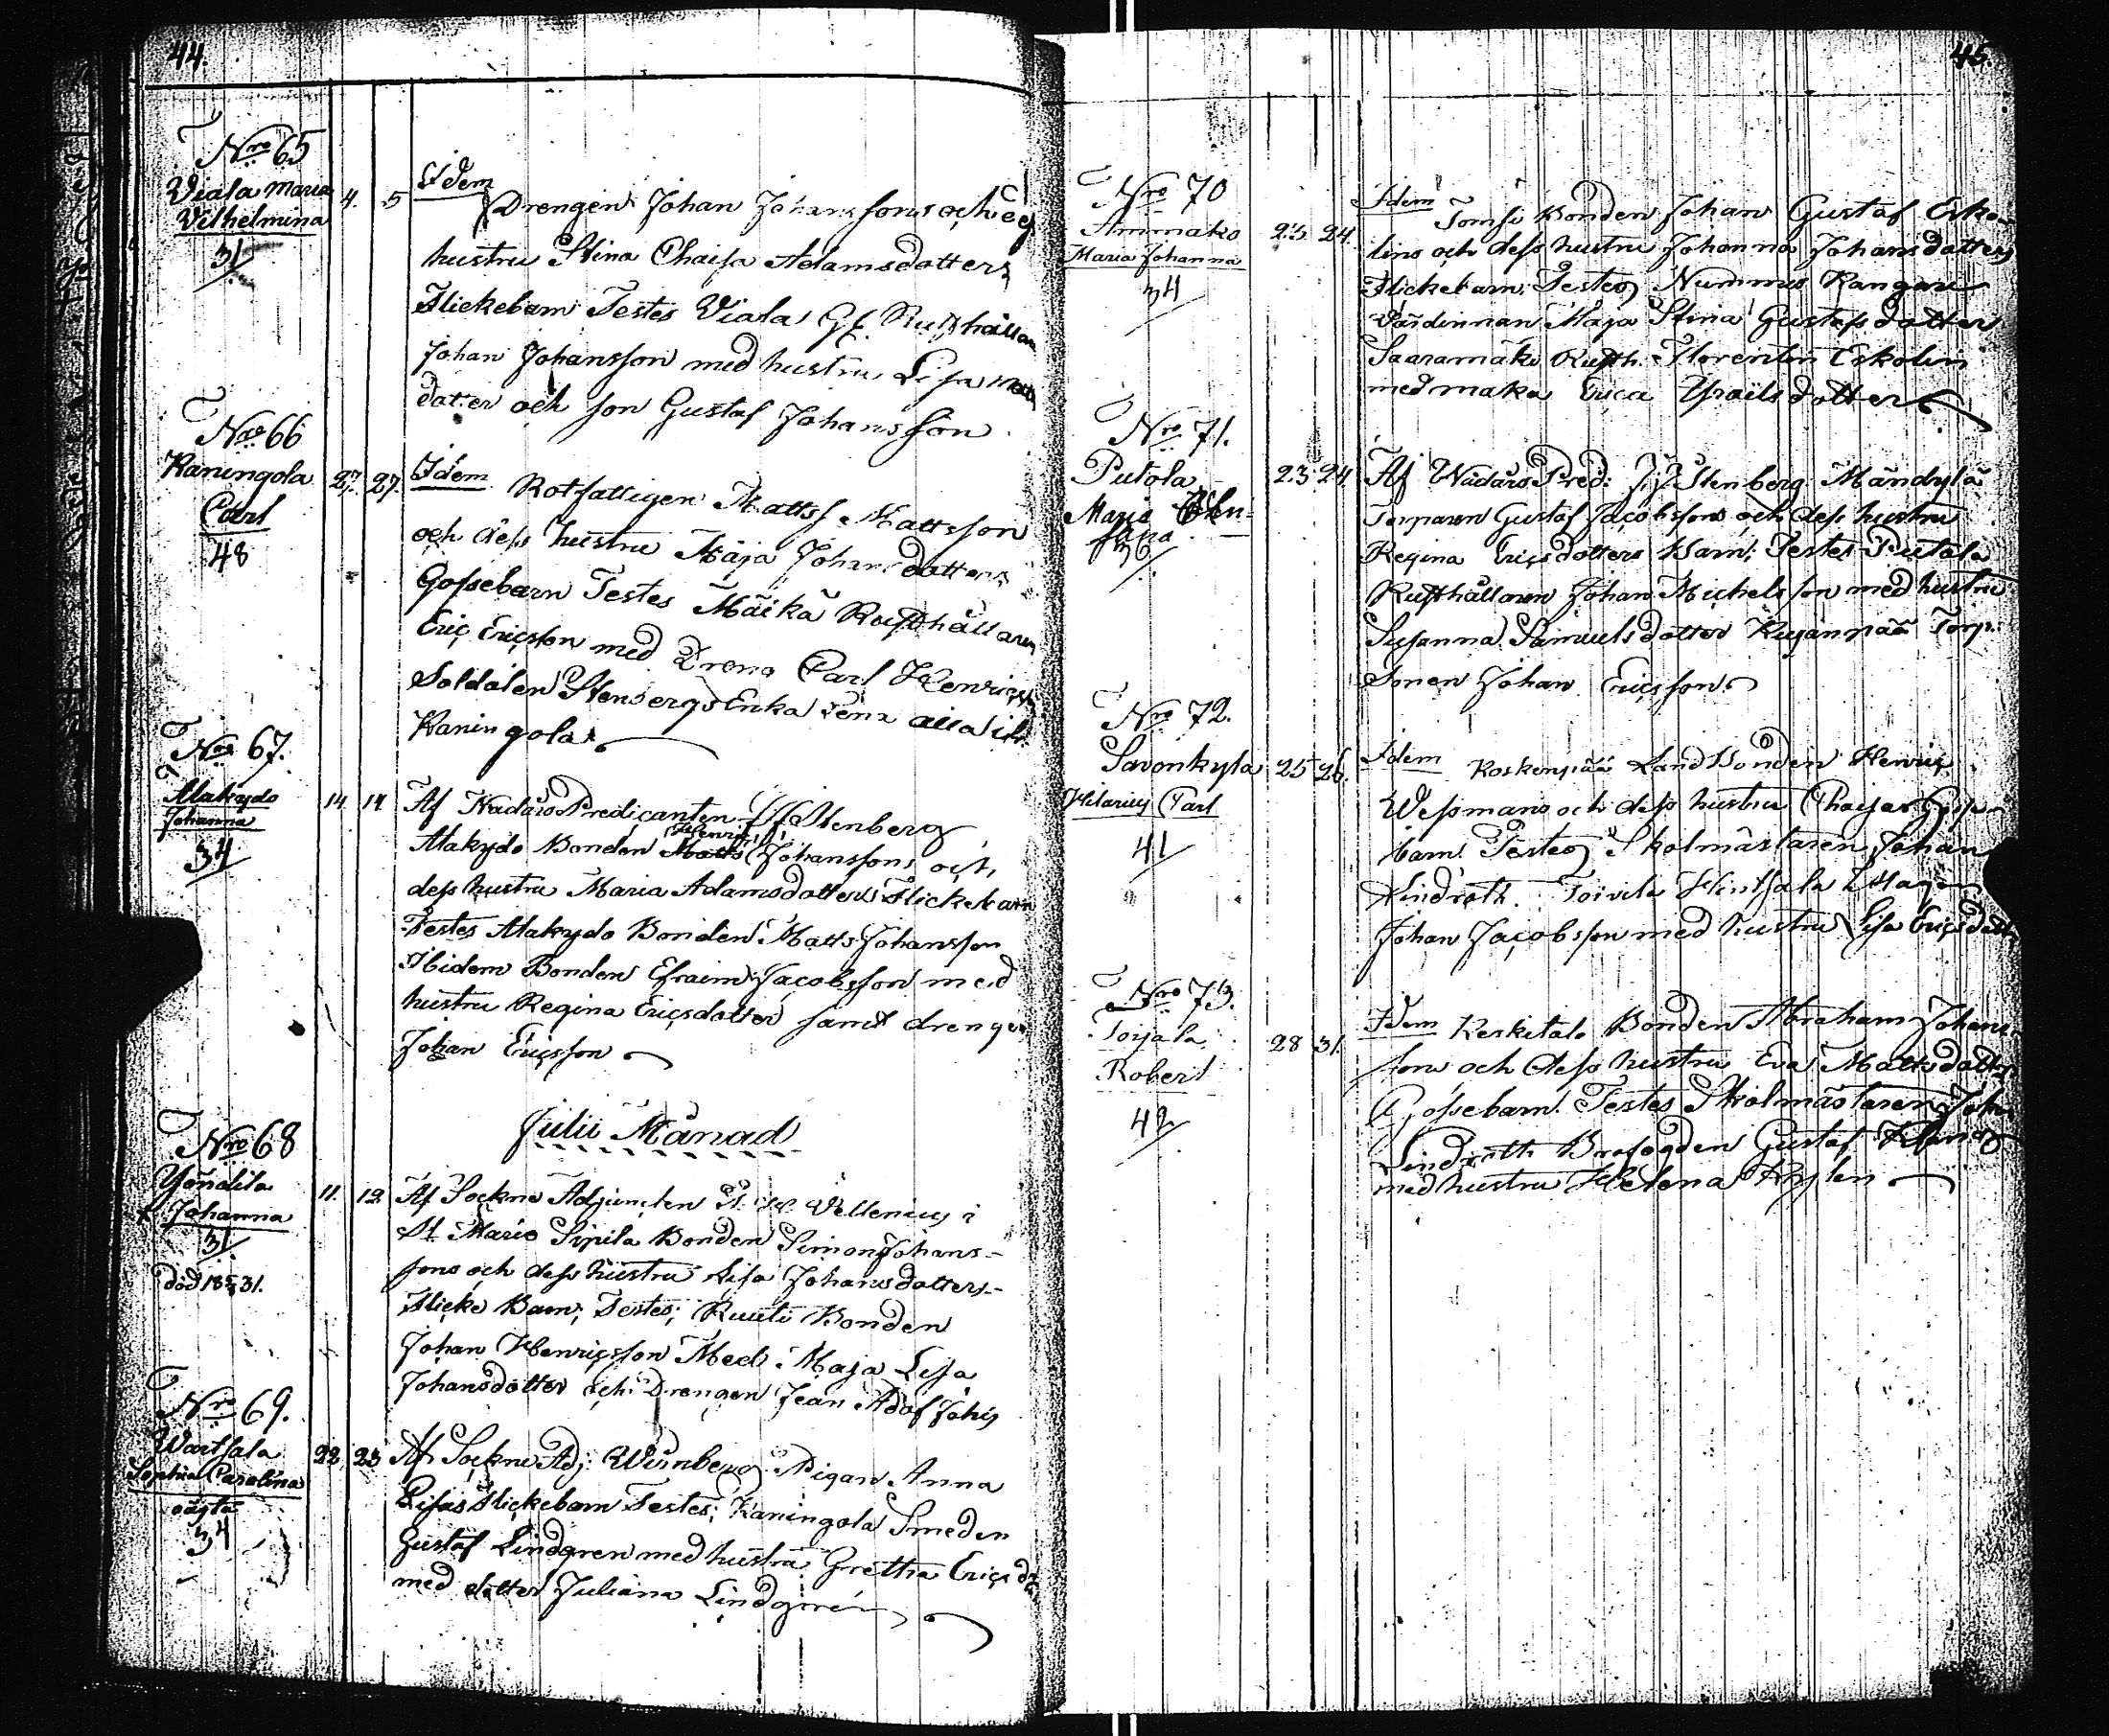 44.
Nro 65
Viala Maria
Vilhelmina
31/
4. 5
Idem
Drengen Johan Johanssons och
hustru Stina Chaisa Adamsdotters
Flickebarn Testes Viala Gl. Rusthållaren
Johan Johansson med hustru Lisa
dotter och son Gustaf Johansson
Nro 66
Kaningola
Carl
48
27. 27.
Idem Rotfattigen Matts Mattsson
och dess hustru Maja Johansdotters
Gossebarn Testes Mäikä Rusthållaren
Eric Ericsson med Dreng Carl Henricss
Soldaten Stenbergs Enka Lena alla ifr.
Kaningola
Nro 67.
Alakydo
Johanna
34
14 14
Af Nådårs Predicanten Stenberg
Henric
Alakydo Bonden Matts Johanssons och
dess hustru Maria Adamsdotters Flickebarn
Testes Alakydo Bonden Matts Johansson
Ibidem Bonden Efraim Jacobsson med
hustru Regina Ericsdotter samt drengen
Johan Ericsson
Julii Månad
Nro 68
Yöndilä
Johanna
31.
död 18 31.
11. 12
Af Sockne Adjuncten Vellenius i
St Marie Sipilä Bonden Simon Johans-
sons och dess hustru Lisa Johansdotters-
Flicke Barn; Testes; Ruuti Bonden
Johan Henricsson Med Maja Lisa
Johansdotter och Drengen Jean Adof Johs
Nro 69.
Wartsala
Sophia Carolina
oägta
34
22 23
Af Sockne Adj: Winnberg Pigan Anna
Lisas Flickebarn Testes; Kaningola Smeden
Gustaf Lindgren med hustru Gretha Ericsdr
med dotter Juliana Lindgren
45.
Nro 70
Ammako
Maria Johanna
34
23 24.
Idem Tomsi Bonden Johan Gustaf Erko-
lins och dess hustru Johanna Johansdotters
Flickebarn; Testes Nummis Kangari
Värdinnan Maja Stina Gustafsdotter
Saaramäki Rusth. Florentin Erkolin
med maka Erica Ysraelsdotter
Nro 71.
Putola
Maria
36
23 24.
Af Nådårs Pred: J: J Stenberg Mändylä
Torparen Gustaf Jacobssons och dess hustru
Regina Ericsdotters Barn; Testes Putola
Rusthållaren Johan Michelsson med hustru
Susanna Samuelsdotter Kujanpää Torp.
Sonen Johan Ericsson
Nro 72.
Savonkyla
Hilarius Carl
41
25 26.
Idem Koskenpää LandBonden Henric
Wessmans och dess hustru Chaisas Gosse
barn Testes Skolmästaren Johan
Lindroth. Toivila Hintsala
Johan Jacobsson med hustru Lisa Ericsdotter
Nro 73.
Torjala
Robert
42
28 31.
Idem Keskitalo Bonden Abraham Johans-
sons och dess hustru Eva Mattsdotters
Gossebarn. Testes Skolmästaren Joh.
Lindroth Brofogden Gustaf
med hustru Helena Rylen